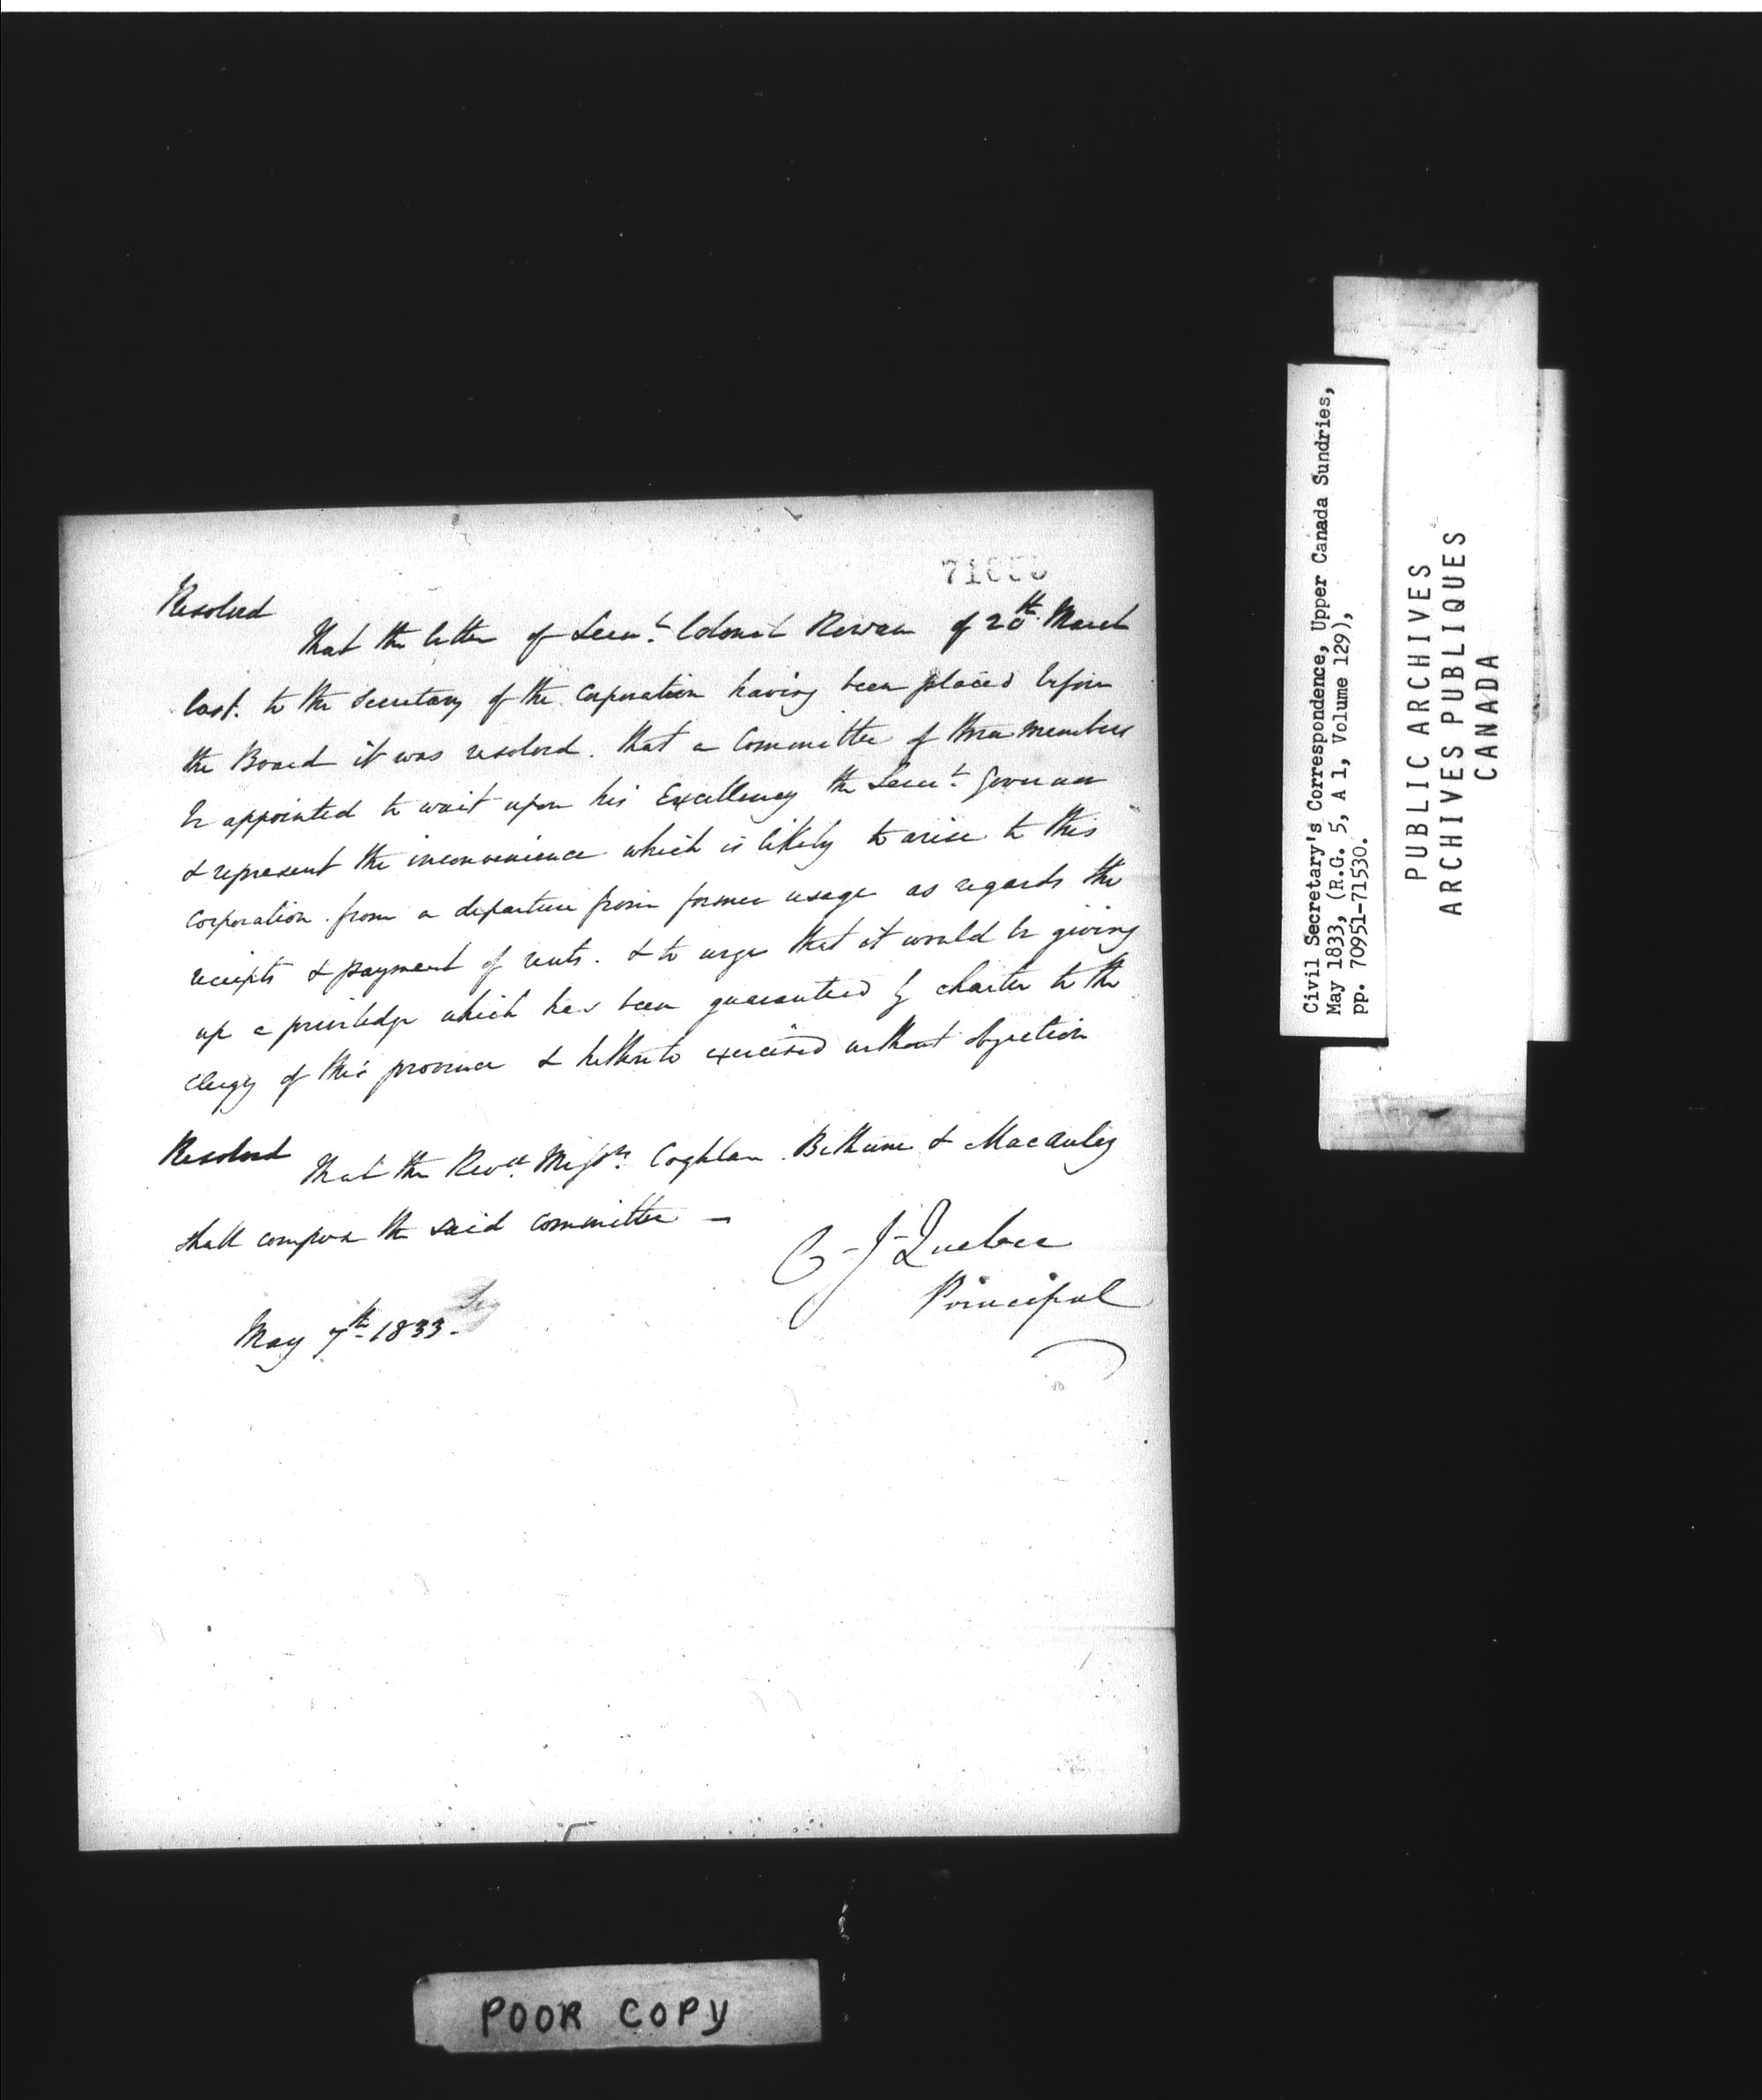 Resolved
That the letter of Lieut. Colonel Rowan of 20th March
last. to the secretary of the Corporation having been placed before
the Board it was resolved. that a Committee of three members
be appointed to wait upon his Excellency the Lieut. Governor
& represent the inconvenience which is likely to arise to this
corporation. from a departure from former usage as regards the
receipts & payment of rents. & to urge that it would be giving
up a priviledge which has been guaranteed by charter to the
clergy of this province & hitherto exercised without objection
Resolved That the Revd. Messrs. Coghlan. Bethune & Macaulay
shall compose the said committee —
C-J-Quebec
Principal
May 7th 1833.
Civil Secretary's Correspondence, Upper Canada Sundries,
May 1833, (R.G. 5, A 1, Volume 129),
pp. 70951-71530.
PUBLIC ARCHIVES
ARCHIVES PUBLIQUES
CANADA
POOR COPY